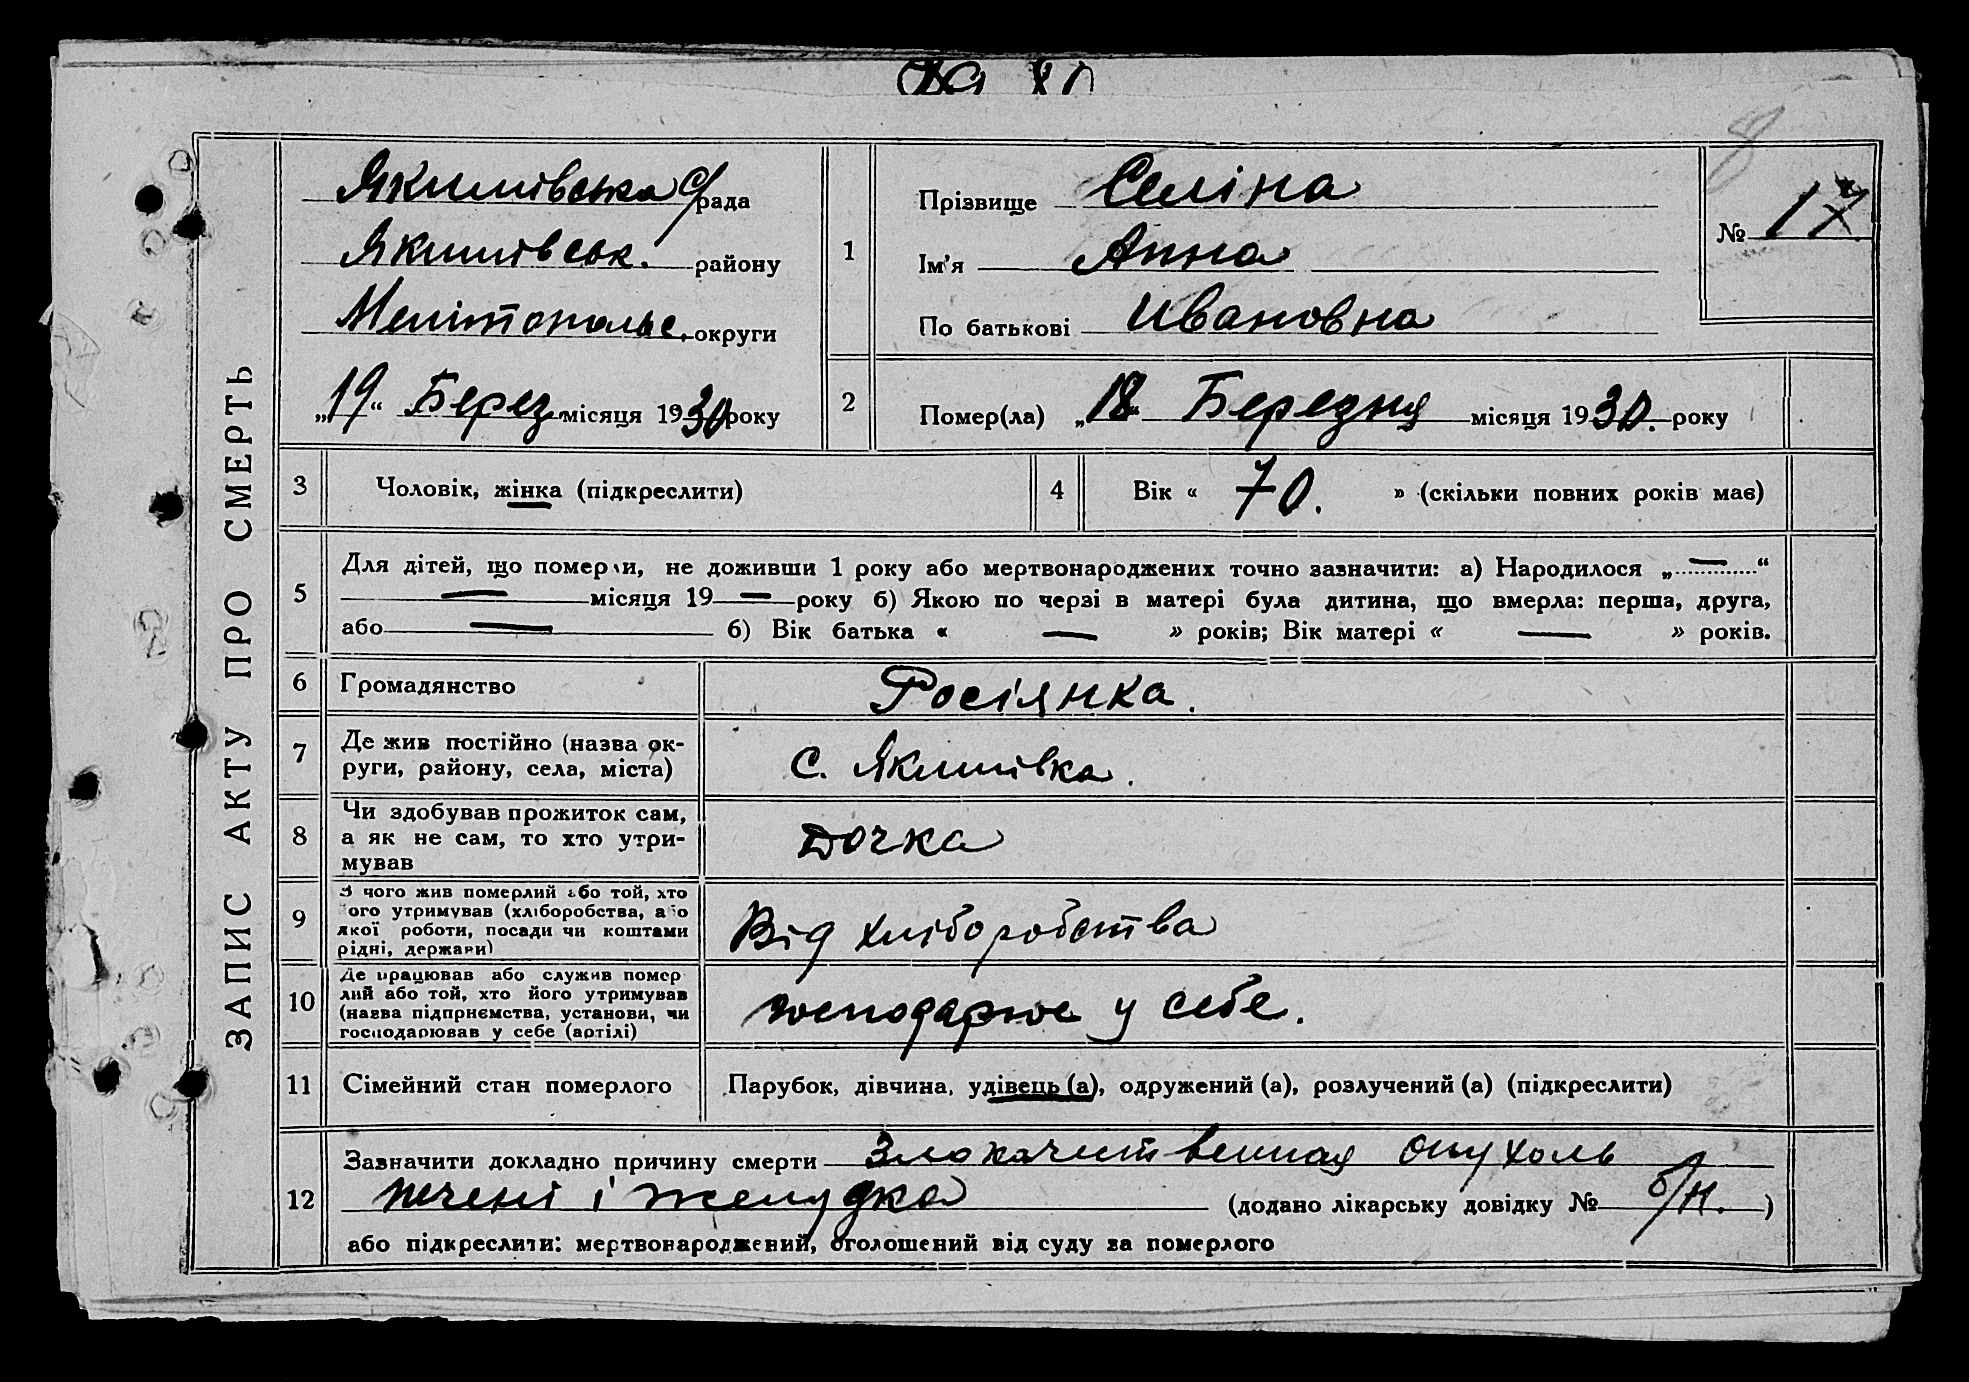 ЗАПИС АКТУ ПРО СМЕРТЬ
Якимівська с/рада
Якимівськ. району
Мелітопольс. округи
„19“ Берез місяця 1930 року
1
Прізвище Селіна
Ім'я Анна
По батькові Ивановна
№ 17
8
2
Помер(ла) „18“ Березня місяця 1930. року
3 Чоловік, жінка (підкреслити)
4 Вік « 70. » (скільки повних років має)
5
Для дітей, що померли, не доживши 1 року або мертвонароджених точно зазначити: а) Народилося „—“
— місяця 19— року б) Якою по черзі в матері була дитина, що вмерла: перша, друга,
або — б) Вік батька « — » років; Вік матері « — » років.
6 Громадянство Росіянка.
7 Де жив постійно (назва ок-
руги, району, села, міста)
с. Якимівка.
8 Чи здобував прожиток сам,
а як не сам, то хто утри-
мував
Дочка
9 З чого жив померлий або той, хто
його утримував (хліборобства, або
якої роботи, посади чи коштами
рідні, держави)
Від хліборобства
10 Де працював або служив помер
лий або той, хто його утримував
(назва підприємства, установи, чи
господарював у себе (артілі)
господарює у себе.
11 Сімейний стан померлого
Парубок, дівчина, удівець (а), одружений (а), розлучений (а) (підкреслити)
12 Зазначити докладно причину смерти Злокачественная опухоль
печені і желудка (додано лікарську довідку № б/н. )
або підкреслити: мертвонароджений, оголошений від суду за померлого